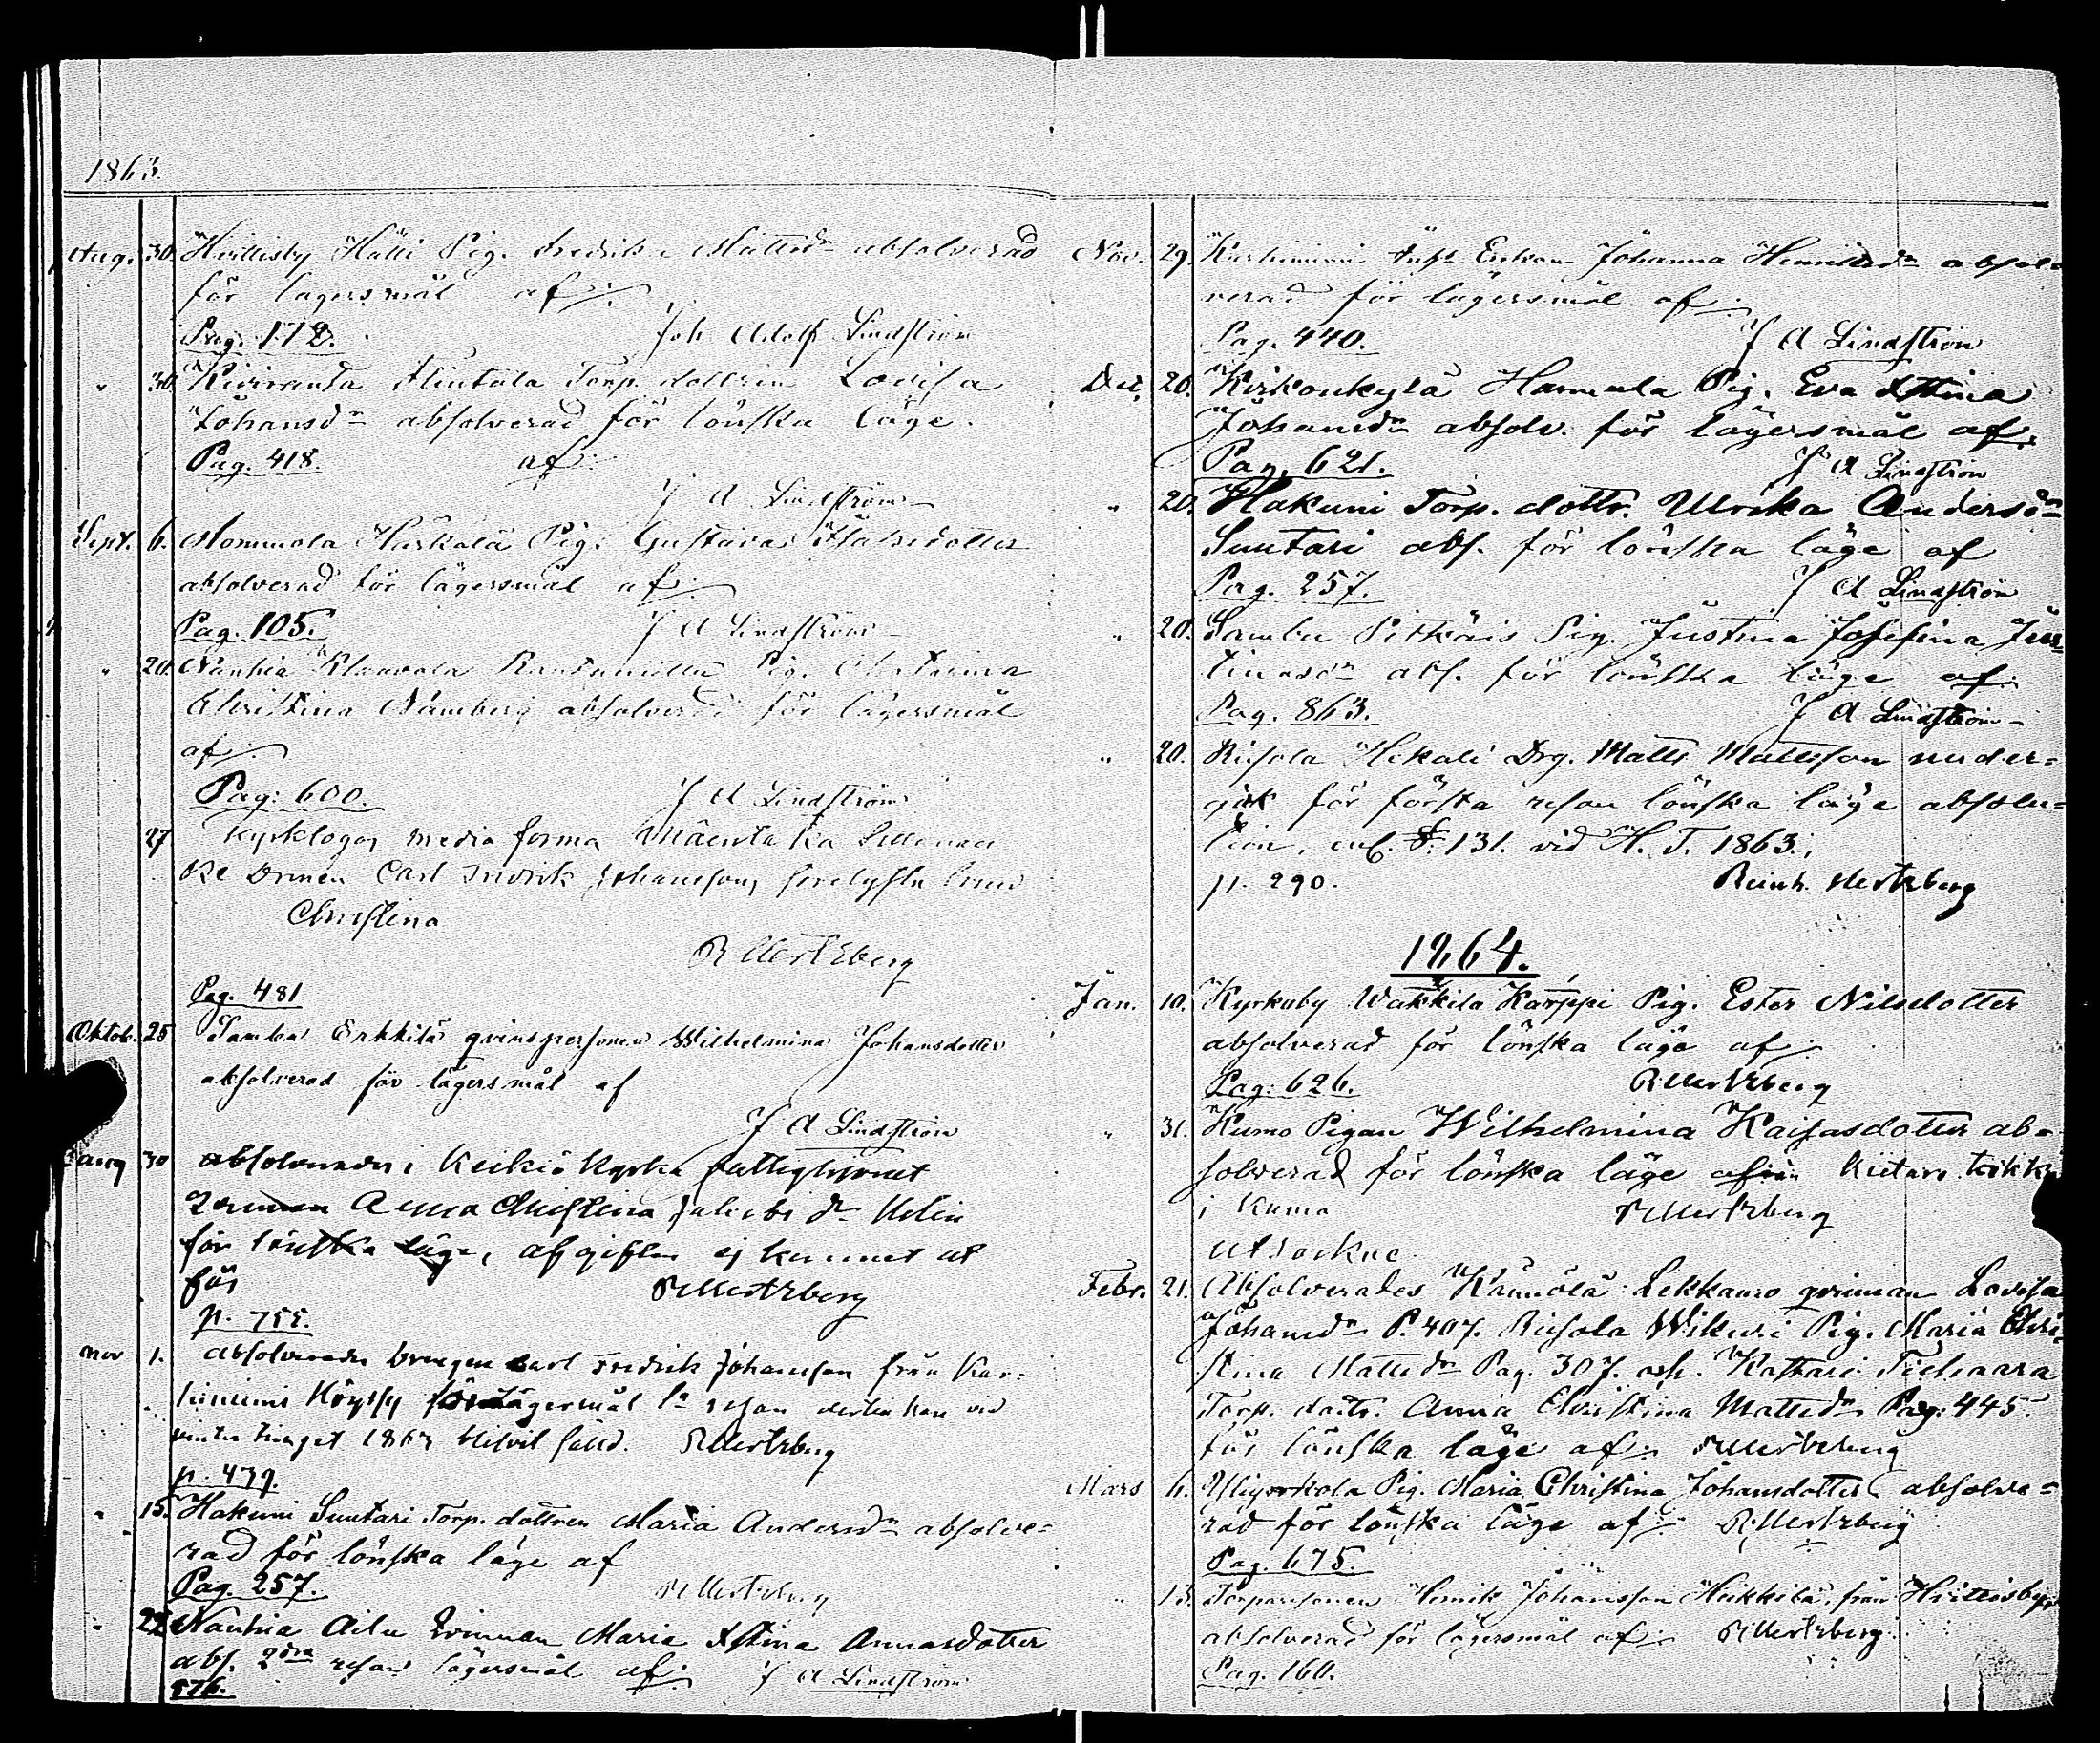 1863.
Aug. 30. Hvittisby Hälli Pig. Fredrika Mattsdr absolverad
för lägersmål af
Pag. 172. Joh Adolf Lindström
" 30. Kiviranta Torp. dottren Lovisa
Johansdr absolverad för lönska läge.
Pag. 418. af
J A Lindström
Sept. 6. Mommola Pig. Gustava
absolverad för lägersmål af
Pag. 105. J A Lindström
" 20. Nanhia Pig. Chatarina
Christina absolverad för lägersmål
af
Pag: 600. J A Lindström
27. Kyrktogos media forma
Carl Fredrik Johansson,
Christina
R Mertzberg
Pag. 481
Oktob. 25 Sambu Erkkilä qvinspersonen Wilhelmina Johansdotter
absolverad för lägersmål af
J A Lindström
30 absolverades i Keikiö Kyrka fatthjonet
Anna Christina
för lönska läge, afgiften ej kunnat ut
fås R Mertzberg
p. 755.
Nov 1. absolverades drengen Carl Fredrik Johansson från Kar-
hiniemi för lägersmål 1a resan
vinter tinget 1863 blifvit fälld. R Mertzberg
p. 439.
" 15. Hakuni Suutari Torp. dottren Maria Andersdr absolve=
rad för lönska läge af
Pag. 257. R Mertzberg
" 22 Nanhia Qvinnan Maria Xstina Annasdotter
abs. 2dra resan lägersmål af J A Lindström
576.
Nov. 29. Karhiniemi Enkan Johanna Henriksdr absol-
verad för lägersmål af
Pag. 440. J A Lindström
Dec. 20. Kirkonkylä Hannula Pig. Eva Xstina
Johansdr absolv. för lägersmål af
Pag. 621. J A Lindström
" 20. Hakuni Torp. dottr. Ulrika Andersdr
Suutari abs. för lönska läge af
Pag. 257. J A Lindström
" 20. Sambu Pitkäis Pig. Justina Josefina Jus-
tinasdr abs. för lönska läge af
Pag. 863. J A Lindström
" 20. Risola Drg. Matts Mattsson under=
gåk för första resan lönska läge absolu=
tion, enl. §. 131. vid H. T. 1863.
p. 290. Reinh. Mertzberg
1864.
Jan. 10. Kyrkoby Wakkila Karppi Pig. Ester Nilsdotter
absolverad för lönska läge af
Pag: 626. R Mertzberg
" 31. Kumo Pigan Wilhelmina Kaisasdotter ab=
solverad för lönska läge
i Kumo R Mertzberg
utsockne
Febr. 21. Absolverades Kännölä Lekkamo qvinnan Lovisa
Johansdr P. 407. Risola Pig. Maria Chri-
stina Mattsdr Pag. 307. och Kattari
Torp. dottr. Anna Christina Mattsdr Pag: 445.
för lönska läge af R Mertzberg
Mars 6. Pig. Maria Christina Johansdotter absolve=
rad för lönska läge af R Mertzberg
Pag. 675.
" 13. Henrik Johansson Heikkilä från Hvittisby
absolverad för lägersmål af R Mertzberg
Pag. 160.